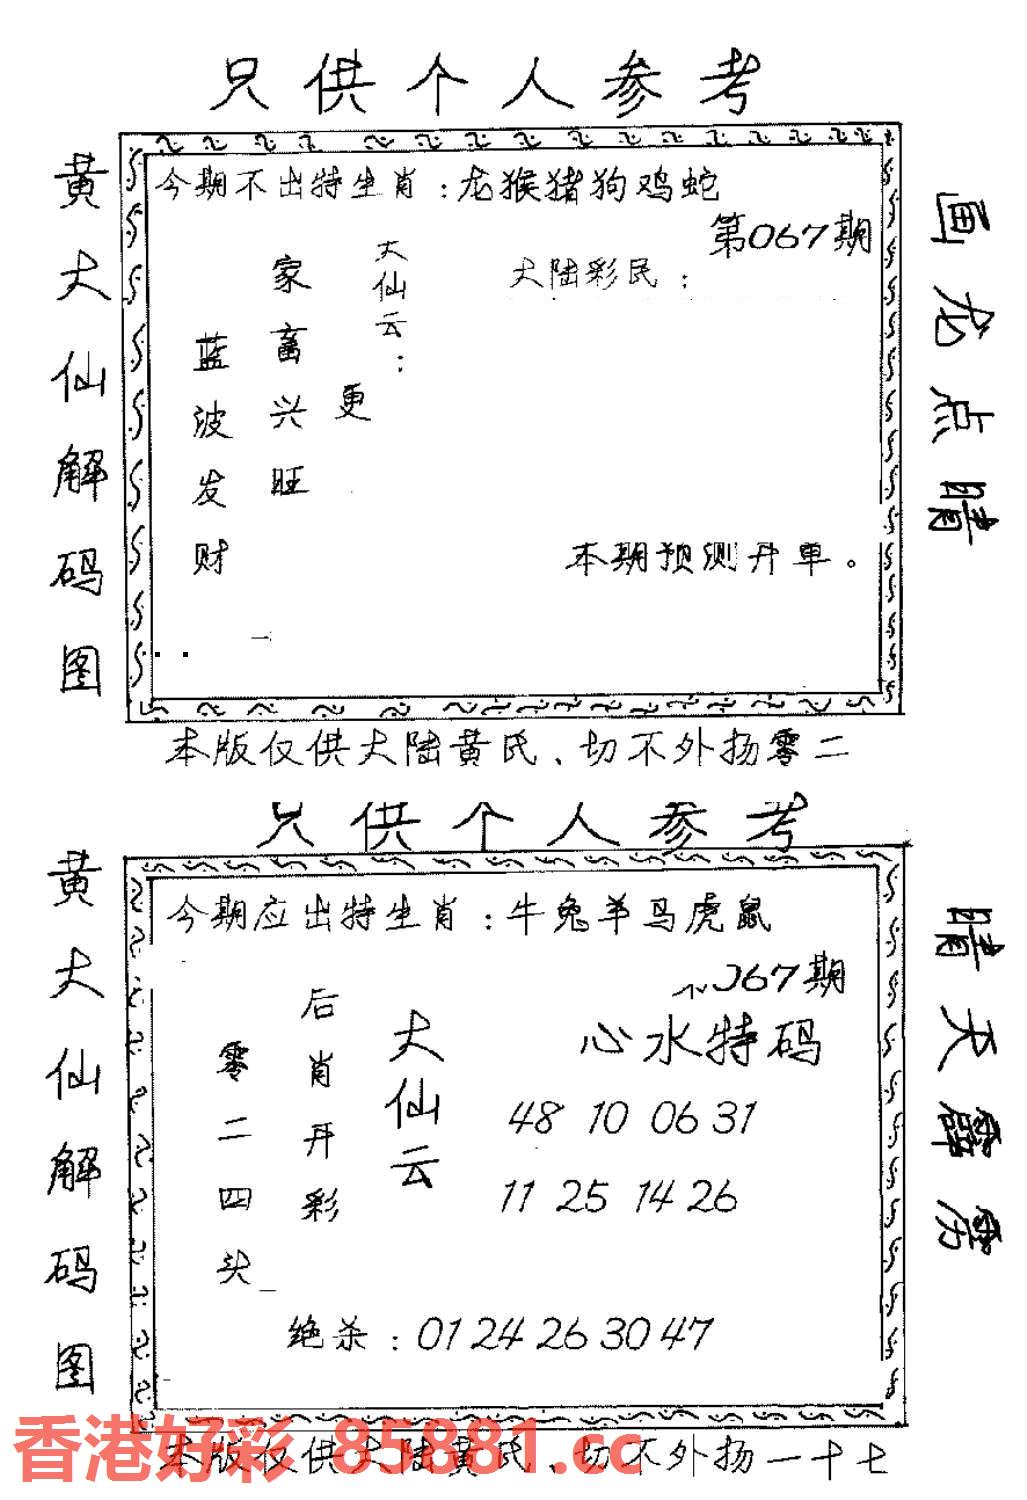 只供个人参考
黄大仙解码图
今期不出特生肖：龙猴猪狗鸡蛇
第067期
大陆彩民：
大仙云：
更
家畜兴旺
蓝波发财
本期预测开单。
画龙点睛
本版仅供大陆黄氏、切不外扬零二
只供个人参考
黄大仙解码图
今期应出特生肖：牛兔羊马虎鼠
067期
心水特码
48 10 06 31
11 25 14 26
大仙云
后肖开彩
零二四头
绝杀：01 24 26 30 47
晴天霹雳
本版仅供大陆黄氏、切不外扬一十七
香港好彩 85881.cc